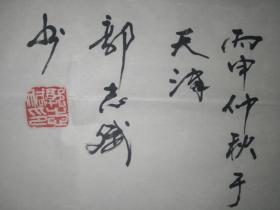 丙申仲秋于
天津
郭志威
书